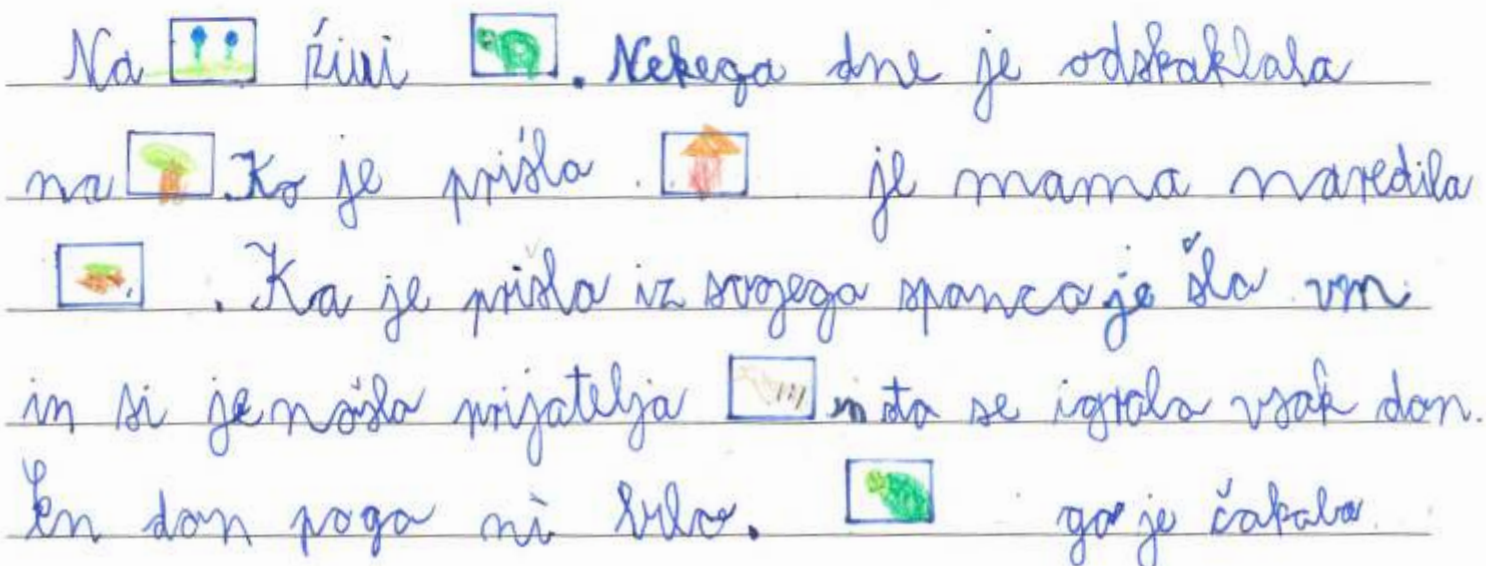 Na živi . Nekega dne je odskaklala
na . Ko je prišla . je mama naredila
. Ka je prišla iz svojega spanca je šla vn
in si je našla prijatelja in sta se igrala vsak dan.
En dan poga ni bilo. ga je čakala